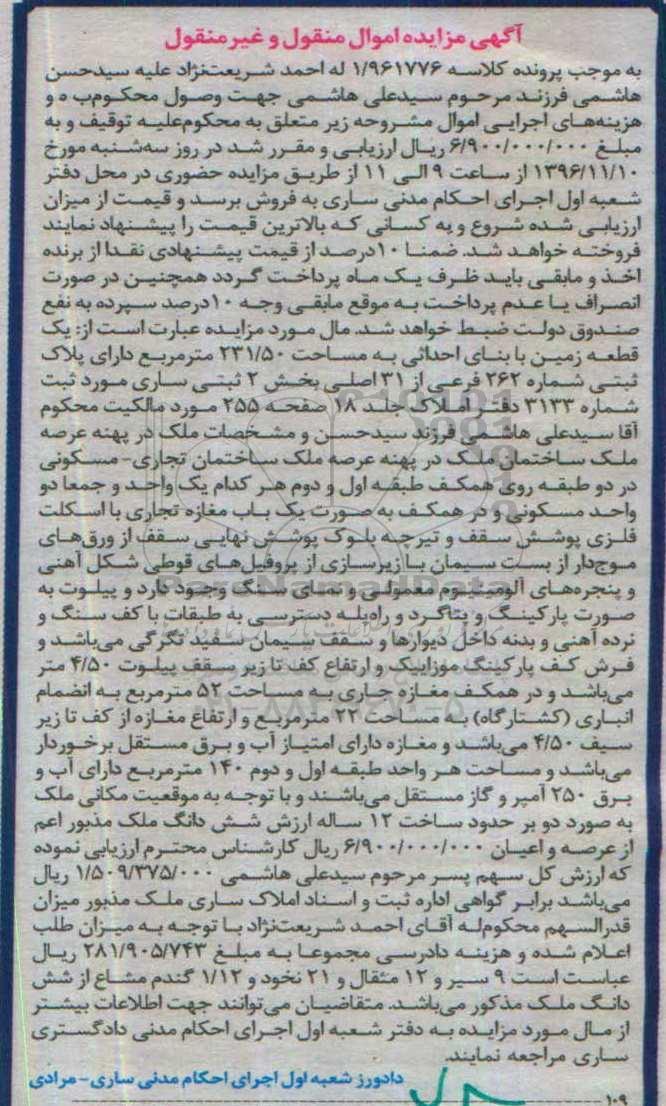 آگهی مزایده اموال منقول و غیر منقول
به موجب پرونده کلاسه ۱/۹۶۱۷۷۶ له احمد شریعت‌نژاد علیه سیدحسن
هاشمی فرزند مرحوم سیدعلی هاشمی جهت وصول محکوم‌ب ه و
هزینه‌های اجرایی اموال مشروحه زیر متعلق به محکوم‌علیه توقیف و به
مبلغ ۶/۹۰۰/۰۰۰/۰۰۰ ریال ارزیابی و مقرر شد در روز سه‌شنبه مورخ
۱۳۹۶/۱۱/۱۰ از ساعت ۹ الی ۱۱ از طریق مزایده حضوری در محل دفتر
شعبه اول اجرای احکام مدنی ساری به فروش برسد و قیمت از میزان
ارزیابی شده شروع و به کسانی که بالاترین قیمت را پیشنهاد نمایند
فروخته خواهد شد. ضمنا ۱۰درصد از قیمت پیشنهادی نقدا از برنده
اخذ و مابقی باید ظرف یک ماه پرداخت گردد همچنین در صورت
انصراف یا عدم پرداخت به موقع مابقی وجه ۱۰درصد سپرده به نفع
صندوق دولت ضبط خواهد شد. مال مورد مزایده عبارت است از: یک
قطعه زمین با بنای احداثی به مساحت ۲۳۱/۵۰ مترمربع دارای پلاک
ثبتی شماره ۲۶۲ فرعی از ۳۱ اصلی بخش ۲ ثبتی ساری مورد ثبت
شماره ۳۱۳۳ دفتر املاک جلد ۱۸ صفحه ۲۵۵ مورد مالکیت محکوم
آقا سیدعلی هاشمی فرزند سیدحسن و مشخصات ملک در پهنه عرصه
ملک ساختمان ملک در پهنه عرصه ملک ساختمان تجاری- مسکونی
در دو طبقه روی همکف طبقه اول و دوم هر کدام یک واحد و جمعا دو
واحد مسکونی و در همکف به صورت یک باب مغازه تجاری با اسکلت
فلزی پوشش سقف و تیرچه بلوک پوشش نهایی سقف از ورق‌های
موج‌دار از بست سیمان با زیرسازی از پروفیل‌های قوطی شکل آهنی
و پنجره‌های آلومینیوم معمولی و نمای سنگ وجود دارد و پیلوت به
صورت پارکینگ و پتاگرد و راه‌پله دسترسی به طبقات با کف سنگ و
نرده آهنی و بدنه داخل دیوارها و سقف سیمان سفید تگرگی می‌باشد و
فرش کف پارکینگ موزاییک و ارتفاع کف تا زیر سقف پیلوت ۴/۵۰ متر
می‌باشد و در همکف مغازه جاری به مساحت ۵۲ مترمربع به انضمام
انباری (کشتارگاه) به مساحت ۲۲ مترمربع و ارتفاع مغازه از کف تا زیر
سیف ۴/۵۰ می‌باشد و مغازه دارای امتیاز آب و برق مستقل برخوردار
می‌باشد و مساحت هر واحد طبقه اول و دوم ۱۴۰ مترمربع دارای آب و
برق ۲۵۰ آمپر و گاز مستقل می‌باشند و با توجه به موقعیت مکانی ملک
به صورد دو بر حدود ساخت ۱۲ ساله ارزش شش دانگ ملک مذبور اعم
از عرصه و اعیان ۶/۹۰۰/۰۰۰/۰۰۰ ریال کارشناس محترم ارزیابی نموده
که ارزش کل سهم پسر مرحوم سیدعلی هاشمی ۱/۵۰۹/۳۷۵/۰۰۰ ریال
می‌باشد برابر گواهی اداره ثبت و اسناد املاک ساری ملک مذبور میزان
قدرالسهم محکوم‌له آقای احمد شریعت‌نژاد با توجه به میزان طلب
اعلام شده و هزینه دادرسی مجموعا به مبلغ ۲۸۱/۹۰۵/۷۴۳ ریال
عباست است ۹ سیر و ۱۲ مثقال و ۲۱ نخود و ۱/۱۲ گندم مشاع از شش
دانگ ملک مذکور می‌باشد. متقاضیان می‌توانند جهت اطلاعات بیشتر
از مال مورد مزایده به دفتر شعبه اول اجرای احکام مدنی دادگستری
ساری مراجعه نمایند.
دادورز شعبه اول اجرای احکام مدنی ساری- مرادی
۱۰۹
ParsNamadData